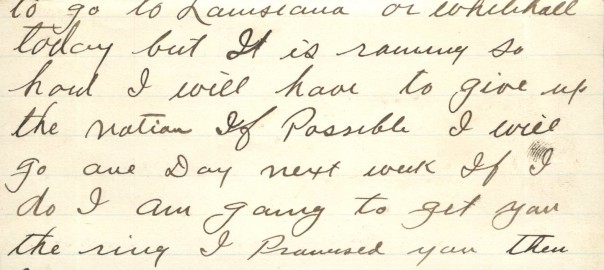 to go to Louisiana or whitehall
today but It is raining so
hard I will have to give up
the notion If Possible I will
go one Day next week If I
do I am going to get you
the ring I Promised you then